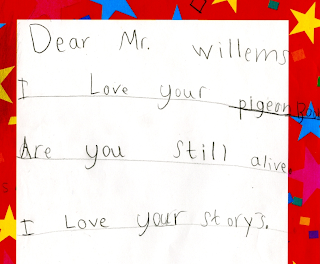 Dear Mr. willems
I Love your pigeon
Are you Still alive
I Love your storys.